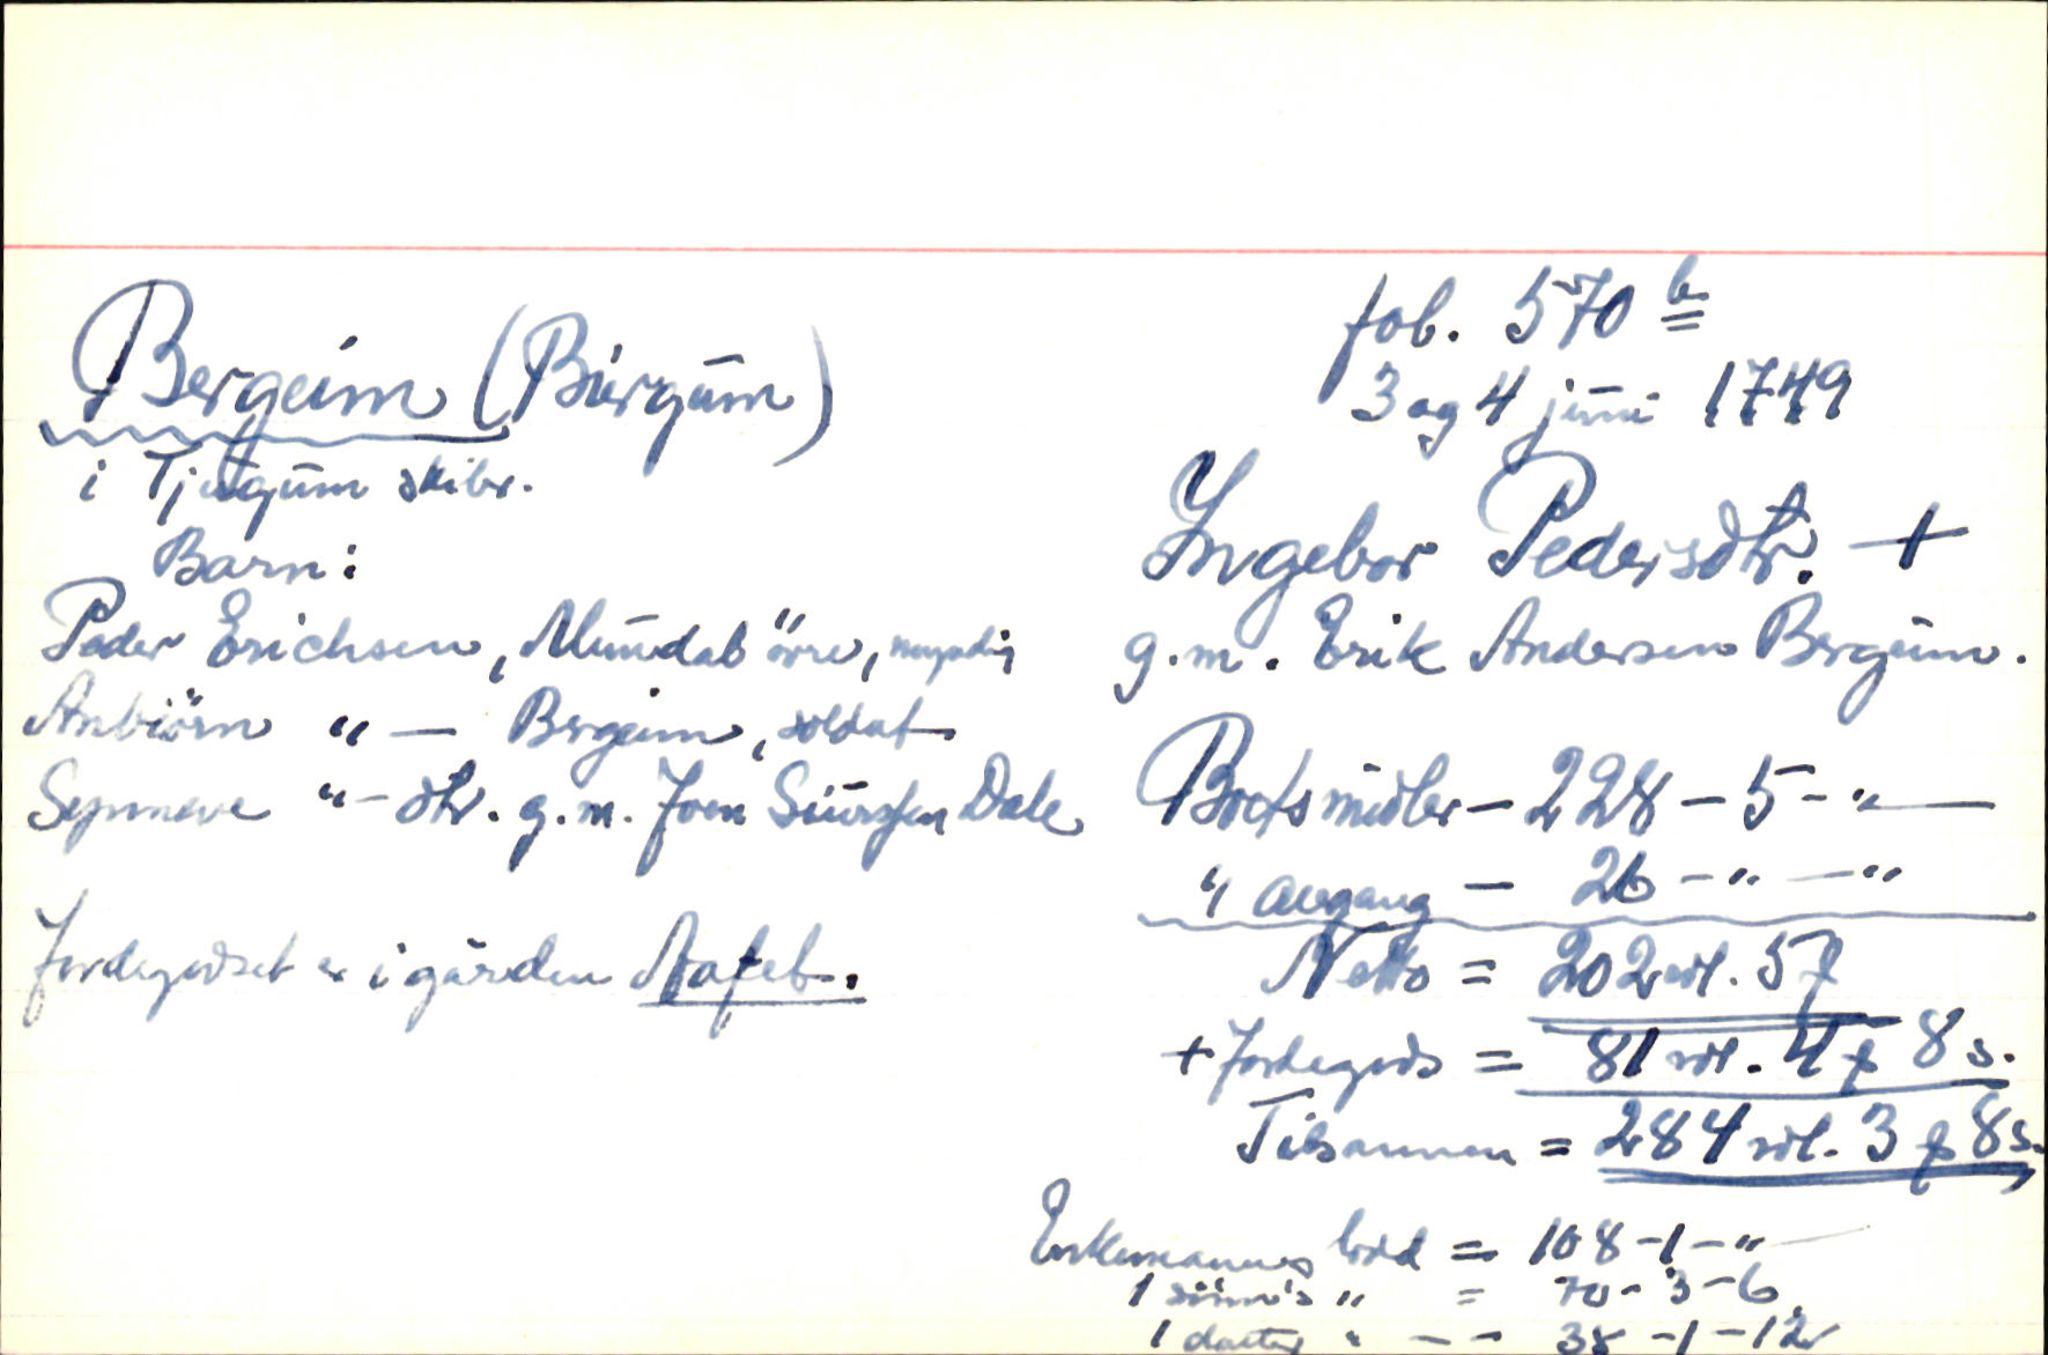 Bergeim (Biergum)
i Tjugum skibr.
Barn:
Peder Erichsen, Mundal övre, myndig
Anbiörn " — Bergeim, soldat
Synneve " — dtr. g.m. Joen Siursen Dale
Jordegodset er i gården
fol. 570 b
3 og 4 juni 1749
Ingebor Pedersdtr. +
g.m. Erik Andersen Bergum.
Boets midler — 228 — 5 — " —
" avgang — 26 — " — "
Netto = 202 rdl. 5
+ Jordegods = 81 rdl. 4 8 s.
Tilsammen = 284 rdl. 3 8 s.
Enkemannens lodd = 108 - 1 - "
1 sönn's " = 70 - 3 - 6
1 datter " — - 1 - 12